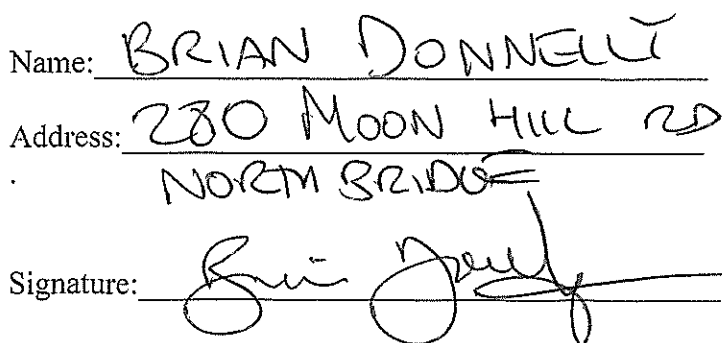 Name: BRIAN DONNELLY
Address: 280 MOON HILL RD
NORTHBRIDGE
Signature: Brian Donnelly